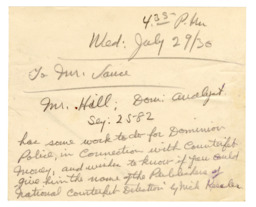 4.35 P.M
Wed: July 29/30
To Mr.
Mr. Hill, Dom: Analyst
Sey: 2582
has some work to do for Dominion
Police, in Connection with Counterfeit
money, and wishes to know if you could
give him the name of the Publishers of
National Counterfeit Detection by Nick